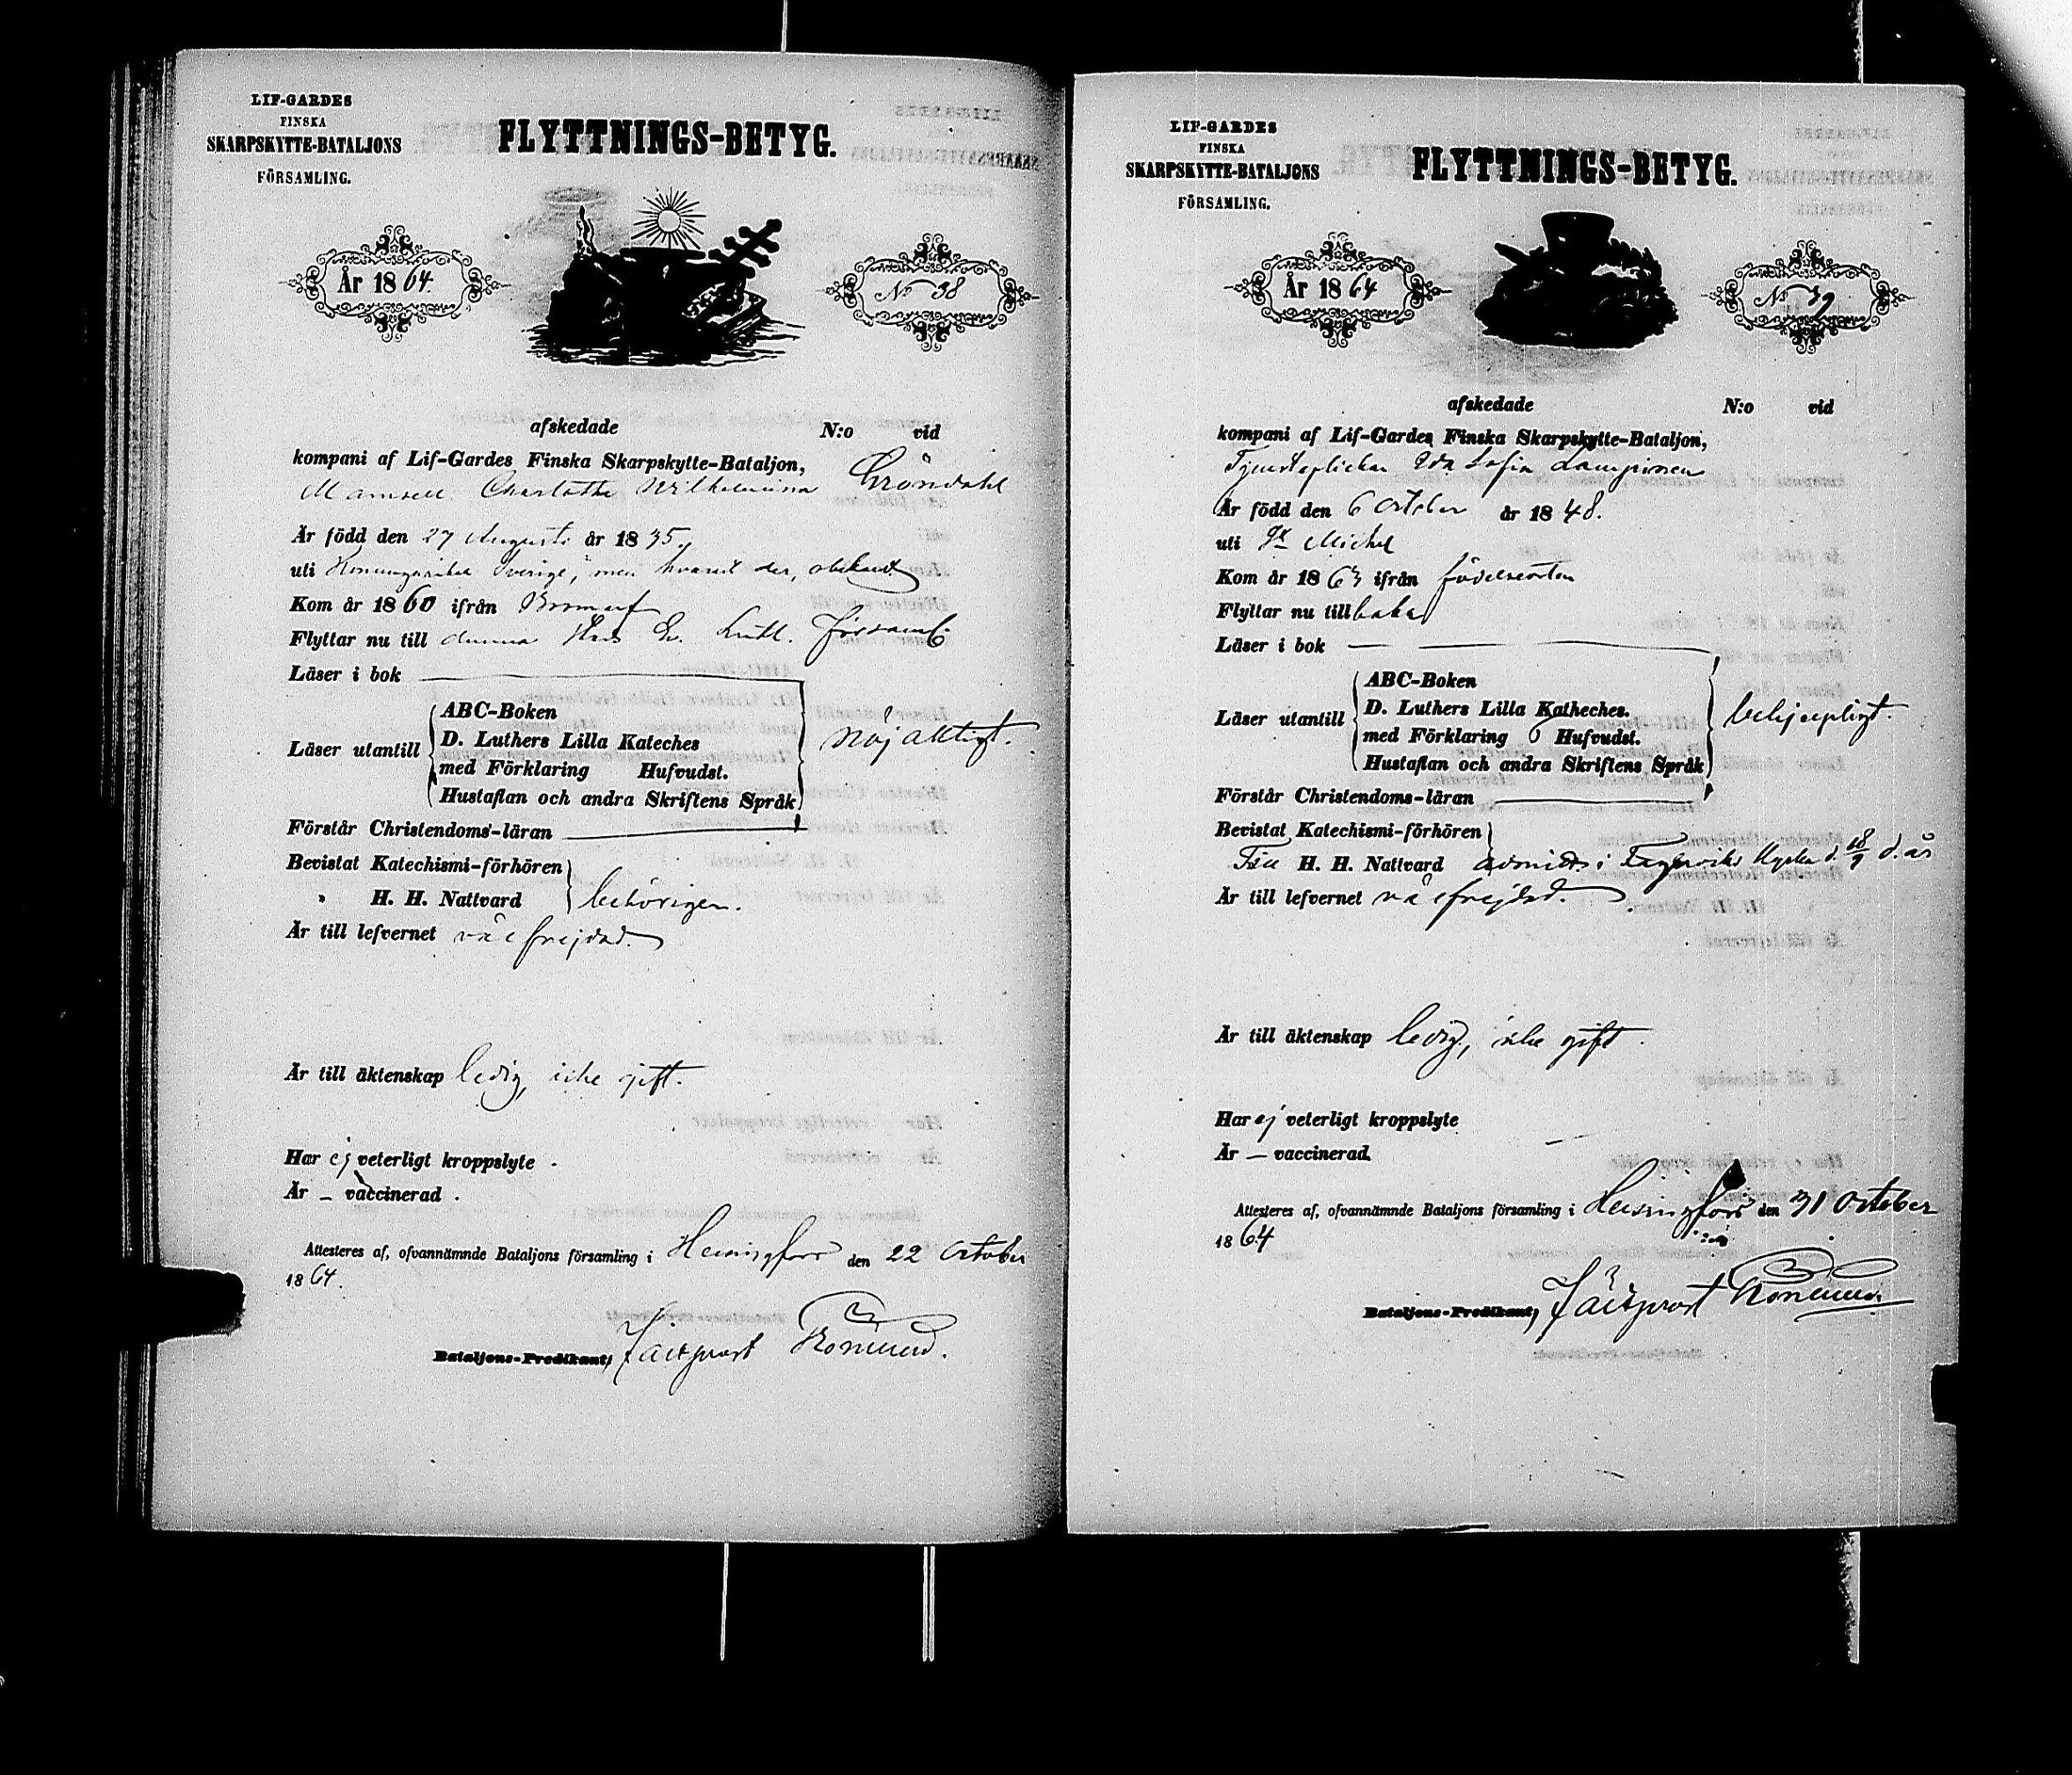 LIF-GARDES
FINSKA
SKARPSKYTTE-BATALJONS
FÖRSAMLING.
FLYTTNINGS-BETYG.
År 1864.
No 38
afskedade N:o vid
kompani af Lif-Gardes Finska Skarpskytte-Bataljon,
Mamsell Charlotta Wilhelmina Gröndahl
Är född den 27 Augusti år 1835.
uti Konungariket Sverige, men hvarest der, obekant
Kom år 1860 ifrån Bromarf
Flyttar nu till denna Luth. församl:
Läser i bok
Läser utantill
ABC-Boken
D. Luthers Lilla Kateches
med Förklaring Hufvudst.
Hustaflan och andra Skriftens Språk
nöjaktigt.
Förstår Christendoms-läran
Bevistat Katechismi-förhören
" H. H. Nattvard behörigen.
Är till lefvernet välfrejdad.
Är till äktenskap ledig, icke gift.
Har ej veterligt kroppslyte.
Är – vaccinerad.
Attesteres af, ofvannämnde Bataljons församling i Helsingfors den 22 October
1864.
Bataljons-Predikant, Fältprost
LIF-GARDES
FINSKA
SKARPSKYTTE-BATALJONS
FÖRSAMLING.
FLYTTNINGS-BETYG.
År 1864
No 39
afskedade N:o vid
kompani af Lif-Gardes Finska Skarpskytte-Bataljon,
Tjensteflickan Ida Sofia Lampinen
Är född den 6 October år 1848.
uti St Michel
Kom år 1863 ifrån födelseorten
Flyttar nu tillbaka
Läser i bok
Läser utantill
ABC-Boken
D. Luthers Lilla Katheches.
med Förklaring 6 Hufvudst.
Hustaflan och andra Skriftens Språk
behjelpligt.
Förstår Christendoms-läran
Bevistat Katechismi-förhören
Till H. H. Nattvard admitt. i Fagerviks kyrka d. 18/9 d. år
Är till lefvernet välfrejdad.
Är till äktenskap ledig, icke gift.
Har ej veterligt kroppslyte
Är – vaccinerad.
Attesteres af, ofvannämnde Bataljons församling i Helsingfors den 31 October
1864
Bataljons-Predikant, Fältprost